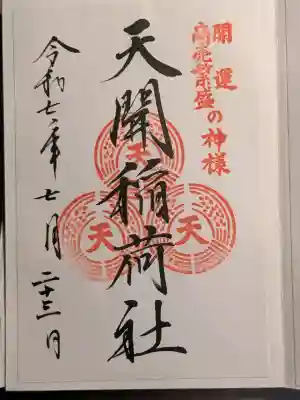 開運
商売繁盛の神様
天開稲荷社
天
天
天
令和七年七月二十三日